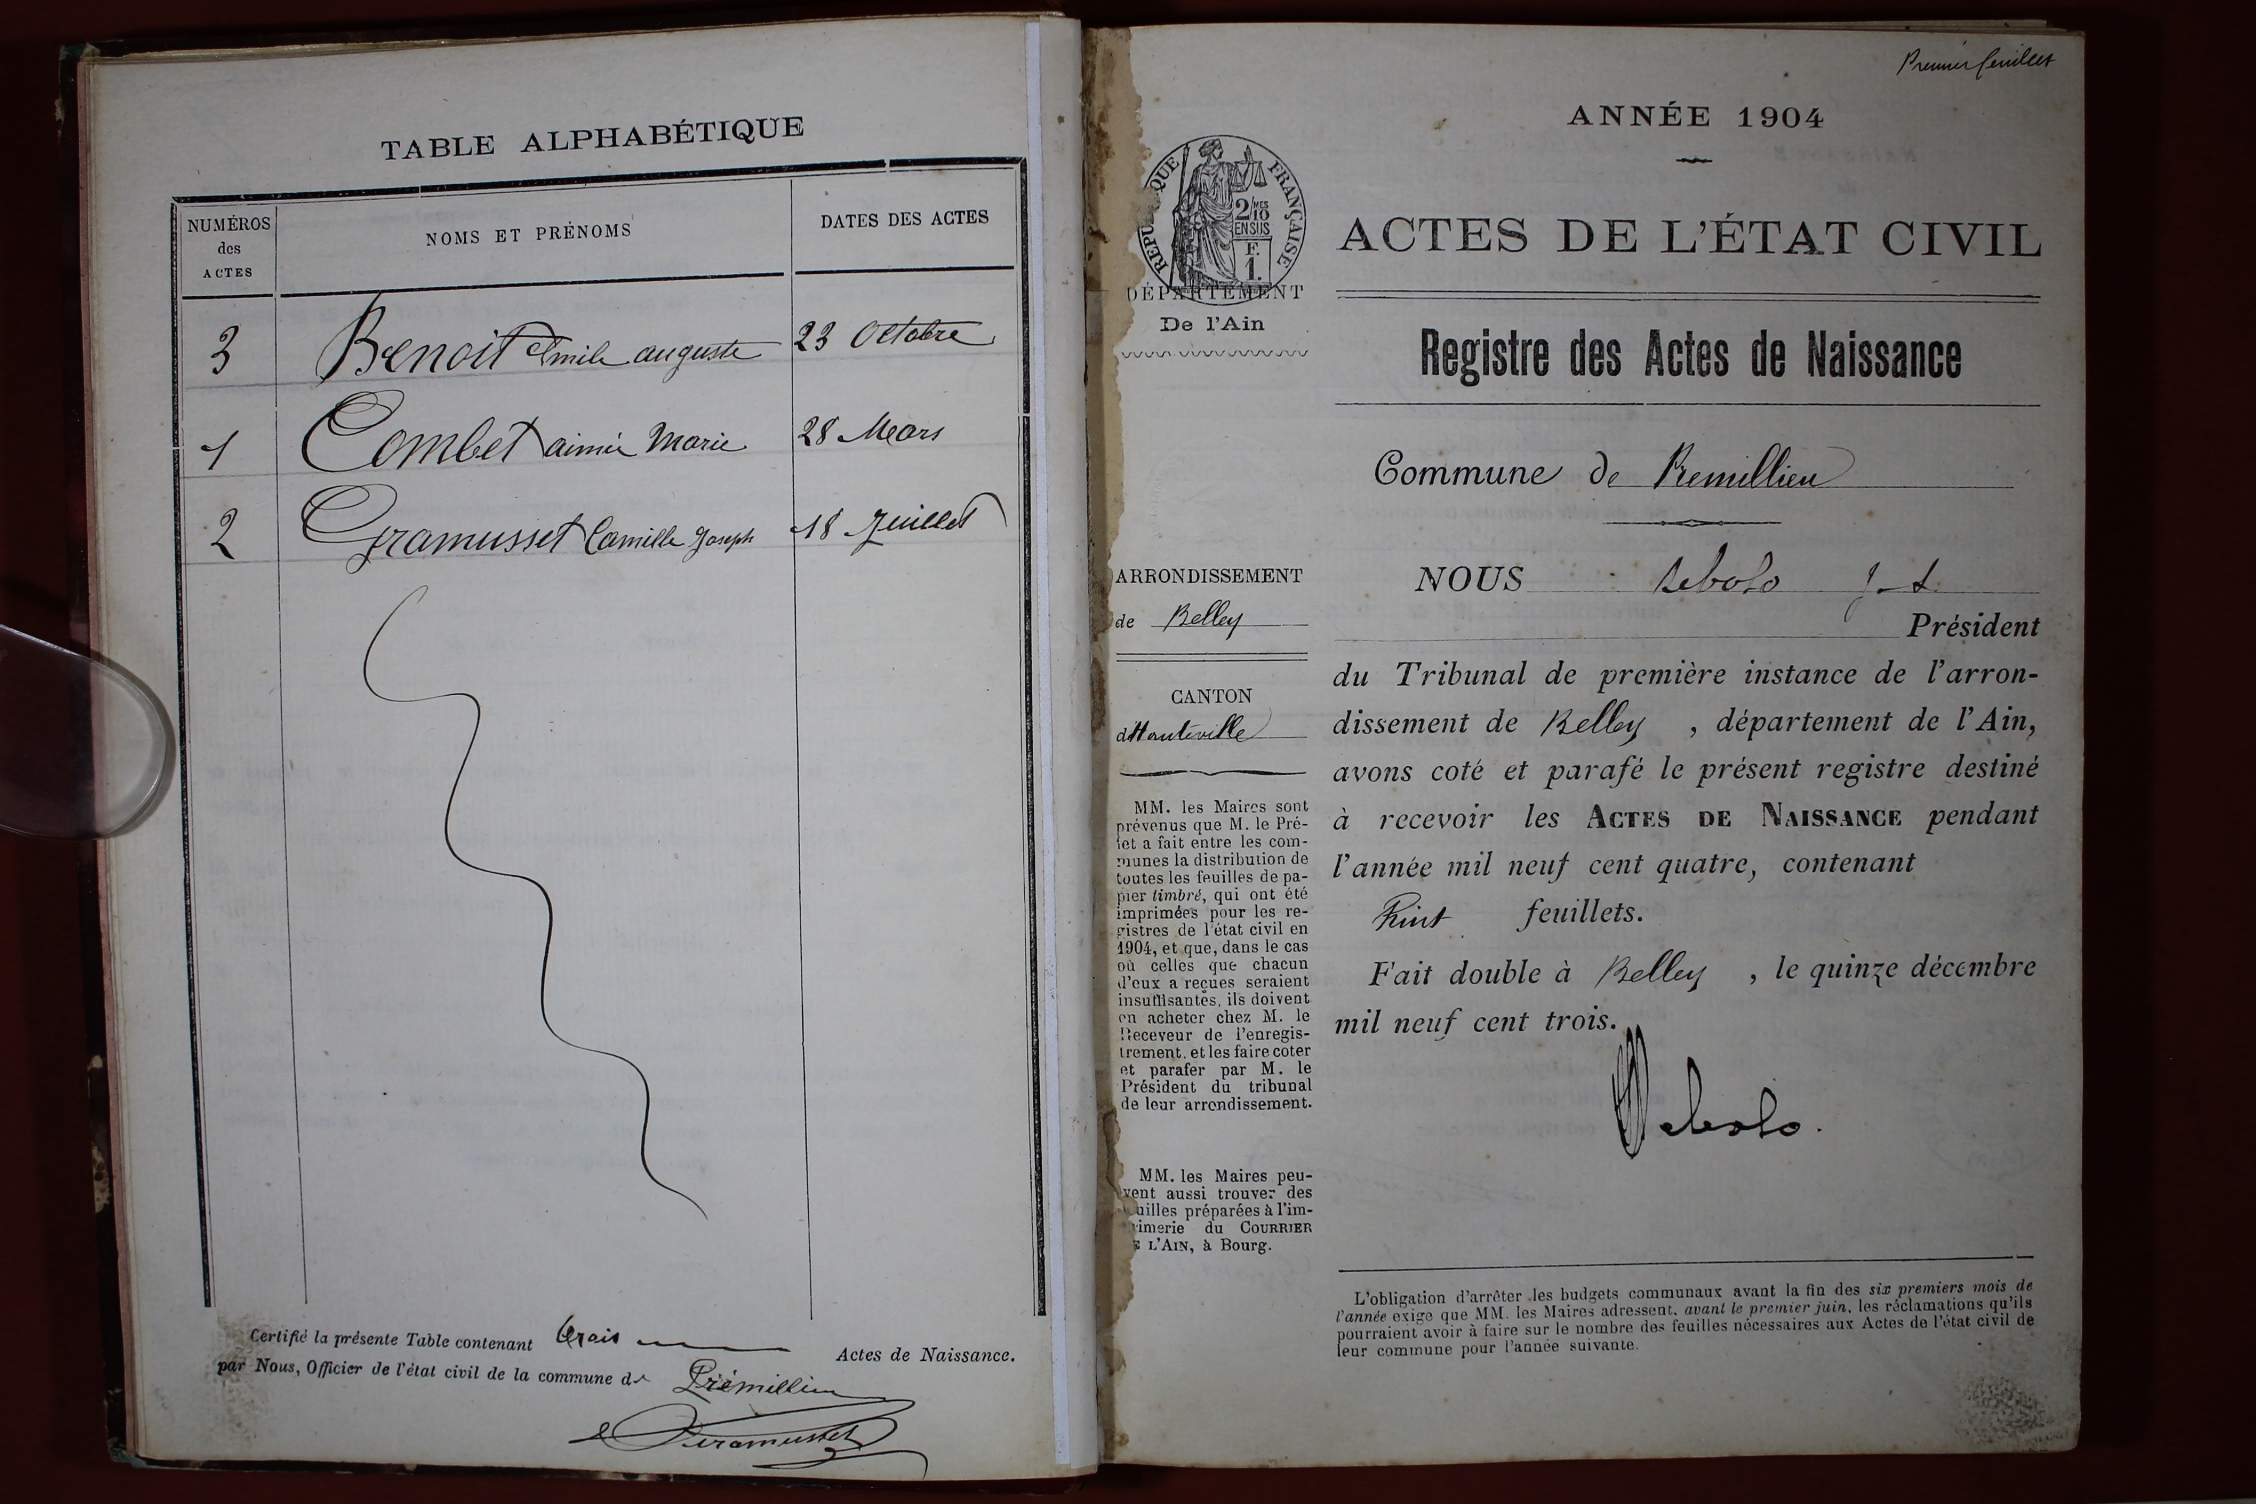 TABLE ALPHABÉTIQUE
NUMÉROS
des
ACTES
NOMS ET PRÉNOMS
DATES DES ACTES
3 Benoit Emile auguste 23 Octobre
1 Combet aimée Marie 28 Mars
2 Gramusset Camille Joseph 18 Juillet
Certifié la présente Table contenant trois Actes de Naissance.
par Nous, Officier de l'état civil de la commune de Prémillieu
Gramusset
Premier feuillet
RÉPUBLIQUE FRANÇAISE
2/10 MES
EN SUS
F.
1.
DÉPARTEMENT
De l'Ain
ARRONDISSEMENT
de Belley
CANTON
d'Hauteville
MM. les Maires sont
prévenus que M. le Pré-
fet a fait entre les com-
munes la distribution de
toutes les feuilles de pa-
pier timbré, qui ont été
imprimées pour les re-
gistres de l'état civil en
1904, et que, dans le cas
où celles que chacun
d'eux a reçues seraient
insuffisantes, ils doivent
en acheter chez M. le
Receveur de l'enregis-
trement, et les faire coter
et parafer par M. le
Président du tribunal
de leur arrondissement.
MM. les Maires peu-
vent aussi trouver des
feuilles préparées à l'im-
primerie du COURRIER
DE L'AIN, à Bourg.
ANNÉE 1904
ACTES DE L'ÉTAT CIVIL
Registre des Actes de Naissance
Commune de Premillieu
NOUS
Président
du Tribunal de première instance de l'arron-
dissement de Belley , département de l'Ain,
avons coté et parafé le présent registre destiné
à recevoir les ACTES DE NAISSANCE pendant
l'année mil neuf cent quatre, contenant
feuillets.
Fait double à Belley , le quinze décembre
mil neuf cent trois.
L'obligation d'arrêter les budgets communaux avant la fin des six premiers mois de
l'année exige que MM. les Maires adressent, avant le premier juin, les réclamations qu'ils
pourraient avoir à faire sur le nombre des feuilles nécessaires aux Actes de l'état civil de
leur commune pour l'année suivante.